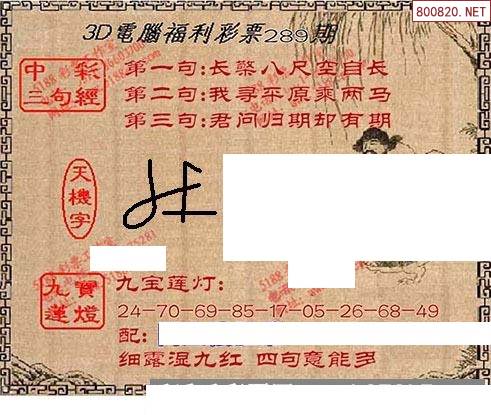 800820.NET
3D電腦福利彩票289期
中彩
三句經
第一句:长檠八尺空自长
第二句:我寻平原乘两马
第三句:君问归期却有期
天機字
九寶蓮燈
九宝莲灯:
24-70-69-85-17-05-26-68-49
配:
细露湿九红 四句意能多